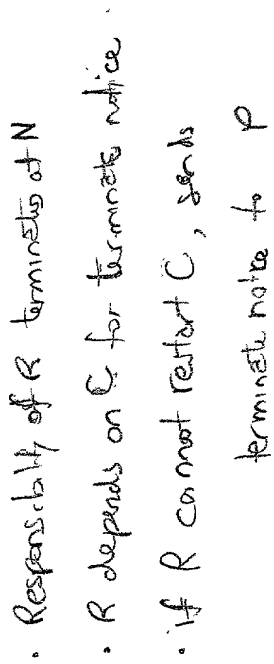 . Responsibility of R terminates at N
. R depends on C for terminate notice.
. if R cannot restart C, sends
terminate notice to P